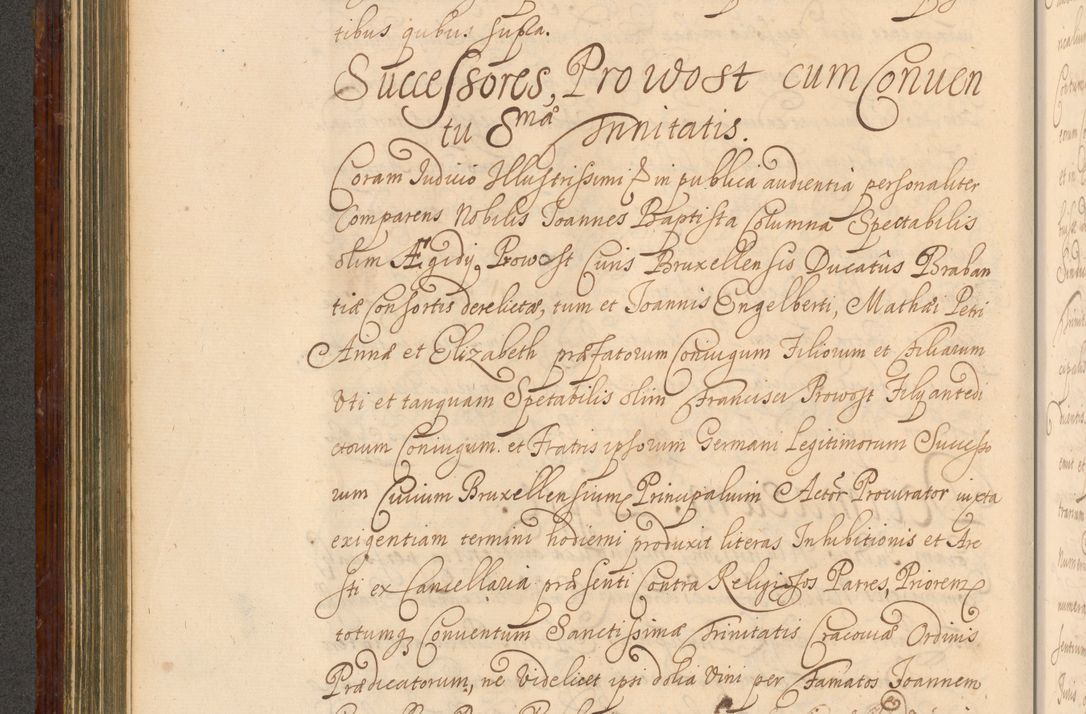 tibus quibus supra.
Successores, Prowost cum Conuen
tu S.mæ Trinitatis.
Coram Iudicio Illustrissimi & in publica audientia personaliter
Comparens Nobilis Ioannes Baptista Columna Spectabilis
olim Ægidij, Prowost Ciuis Bruxellensis Ducatûs Braban
tiæ Consortis derelictæ, tum et Ioannis Engelberti, Mathæi Petri
Annæ et Elizabeth præfatorum Coniugum Filiorum et Filiarum
Vti et tanquam Spetabilis olim Francisci Prowost Filij antedi
ctorum Coniugum. et Fratris ipsorum Germani Legitimorum Successo
rum Ciuium Bruxellensium, Principalium Actor Procurator iuxta
exigentiam termini hodierni produxit literas Inhibitionis et Are
sti ex Cancellaria præsenti Contra Religiosos Patres, Priorem
totumq Conuentum Sanctissimæ Trinitatis Cracouiæ Ordinis
Prædicatorum, ne Videlicet ipsi dolia Vini per Famatos Ioannem